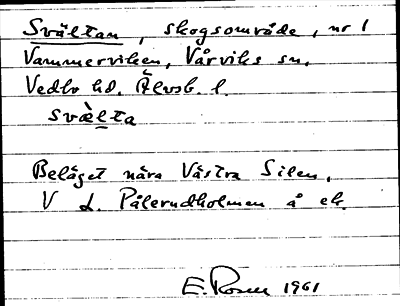 Svältan, skogsområde, nr 1
Vammerviken, Vårviks sn,
Vedbo hd. Älvsb. l.
svæ̀lta
Beläget nära Västra Silen,
V d. Pålerudholmen å ek.
E. Rosen 1961